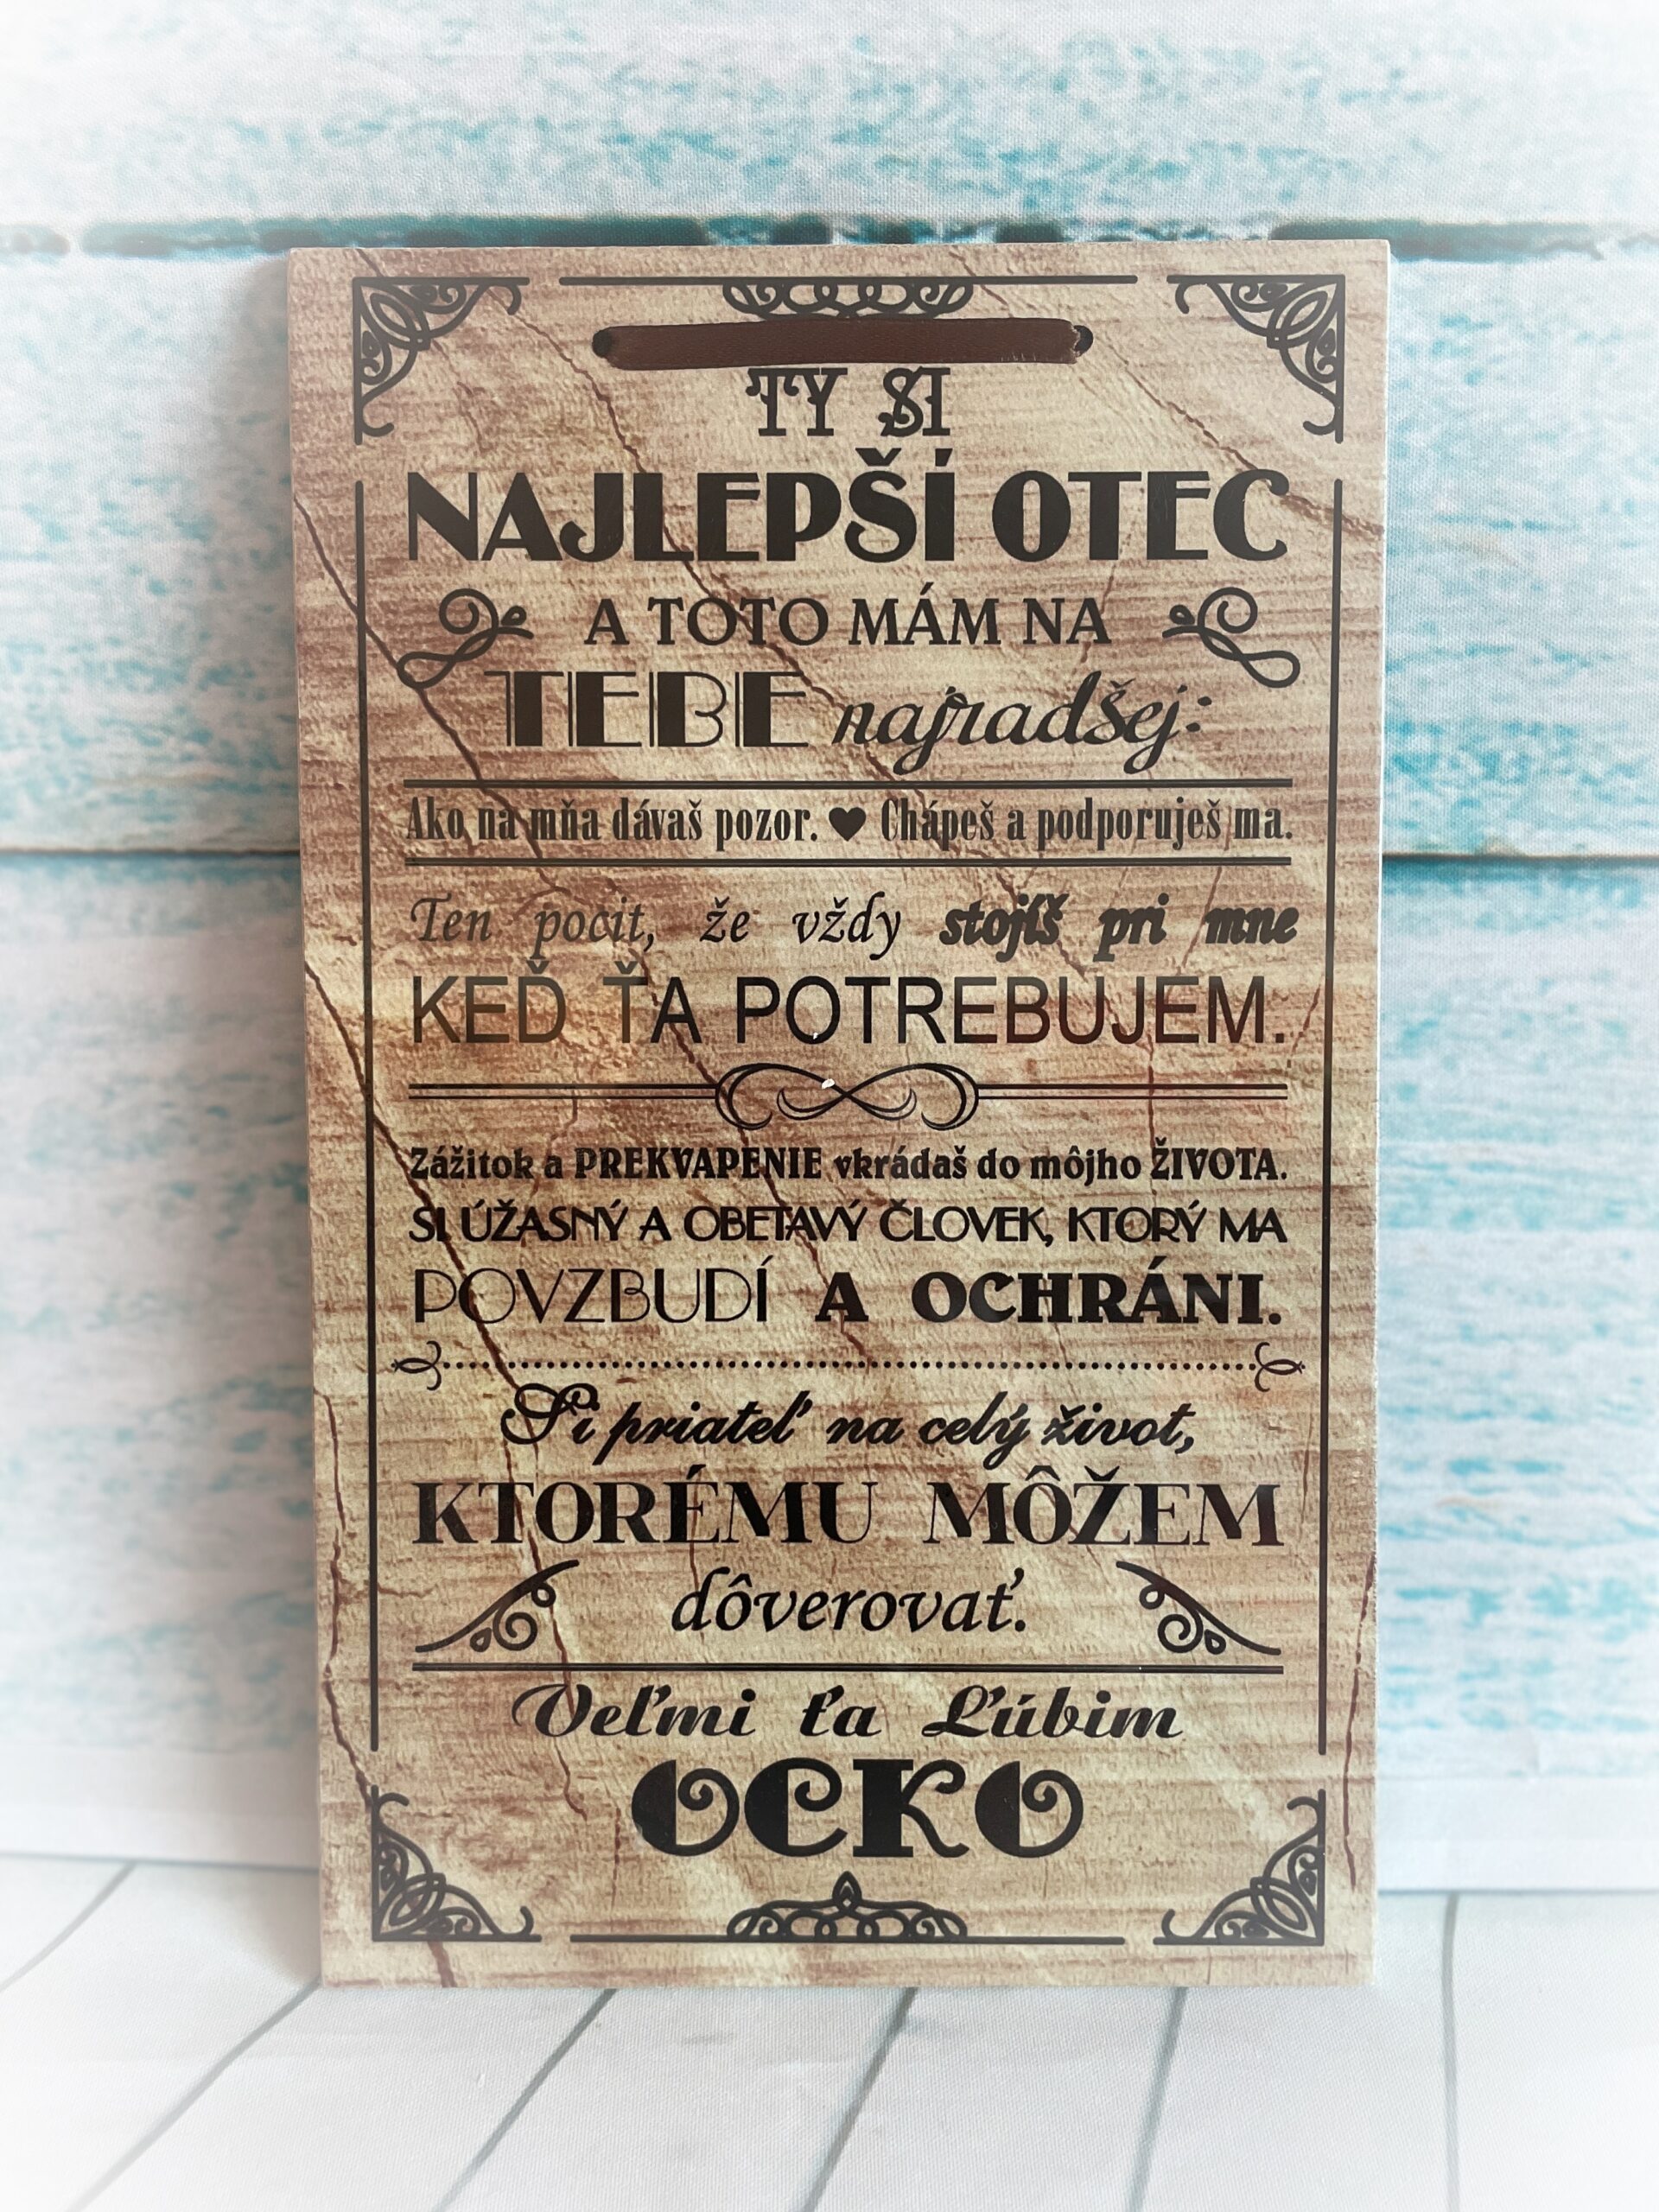 TY SI
NAJLEPŠÍ OTEC
A TOTO MÁM NA
TEBE najradšej:
Ako na mňa dávaš pozor. ♥ Chápeš a podporuješ ma.
Ten pocit, že vždy stojíš pri mne
KEĎ ŤA POTREBUJEM.
Zážitok a PREKVAPENIE vkrádaš do môjho ŽIVOTA.
SI ÚŽASNÝ A OBETAVÝ ČLOVEK, KTORÝ MA
POVZBUDÍ A OCHRÁNI.
Si priateľ na celý život,
KTORÉMU MÔŽEM
dôverovať.
Veľmi ťa Ľúbim
OCKO